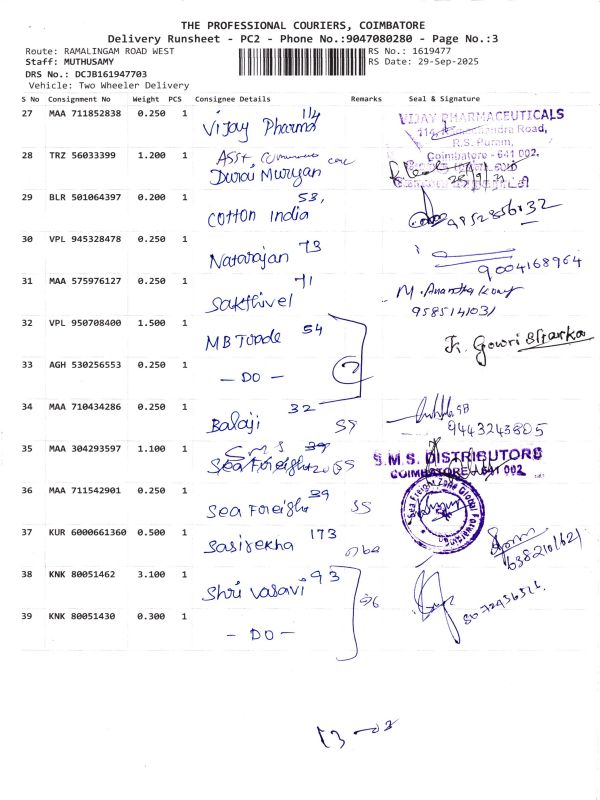 THE PROFESSIONAL COURIERS, COIMBATORE
Delivery Runsheet - PC2 - Phone No.:9047080280 - Page No.:3
Route: RAMALINGAM ROAD WEST
RS No.: 1619477
Staff: MUTHUSAMY
RS Date: 29-Sep-2025
DRS No.: DCJB161947703
Vehicle: Two Wheeler Delivery
S No Consignment No Weight PCS Consignee Details Remarks Seal & Signature
27 MAA 711852838 0.250 1 Vijay Pharma 114
VIJAY PHARMACEUTICALS
Road,
R.S. Puram,
Coimbatore - 641 002.
28 TRZ 56033399 1.200 1 Asst,
29 BLR 501064397 0.200 1 Cotton India 53,
9952856132
30 VPL 945328478 0.250 1 Natarajan 73
9004168964
31 MAA 575976127 0.250 1 Sakthivel 71
9585141031
32 VPL 950708400 1.500 1 MB Trade 54
K. Gowri
33 AGH 530256553 0.250 1 - DO -
34 MAA 710434286 0.250 1 Balaji 32
9443243805
35 MAA 304293597 1.100 1 SMS
S.M.S. DISTRIBUTORS
COIMBATORE-641 002
36 MAA 711542901 0.250 1 Sea Foreight 39 SS
Sea Freight Zone Global Forwarding
37 KUR 6000661360 0.500 1 Sasirekha 173
38 KNK 80051462 3.100 1 Shri Vasavi 93
39 KNK 80051430 0.300 1 - DO -
13